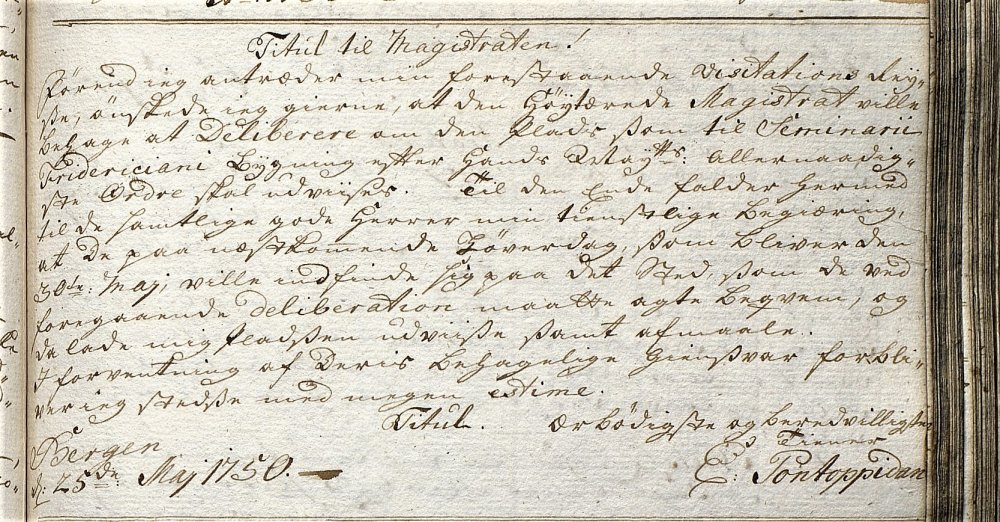 Titul til Magistraten!
Førend ieg antræder min forestaaende Visitations Rey-
ße, ønskede ieg gierne, at den Høytærede Magistrat ville
behage at Deliberere om den Plads ßom til Seminarii
Fridericiani Bygning efter Hands Maytts: allernaadig-
ste Ordre skal udviises. Til den Ende falder hermed
til de samtlige gode Herrer min tienstlige begiæring,
at De paa næstkomende Løverdag, ßom bliver den
30te: Maj, ville indfinde sig paa det Sted, ßom de ved
foregaaende deliberation maatte agte beqvem, og
da lade mig Pladßen udviiße ßamt afmaale.
I forventning af Deris behagelige Gienßvar forbli-
ver ieg stedße med megen estime.
Titul. ærbødigste og beredvilligste
Bergen Tiener
d: 25de: Maj 1750. E: Pontoppidan